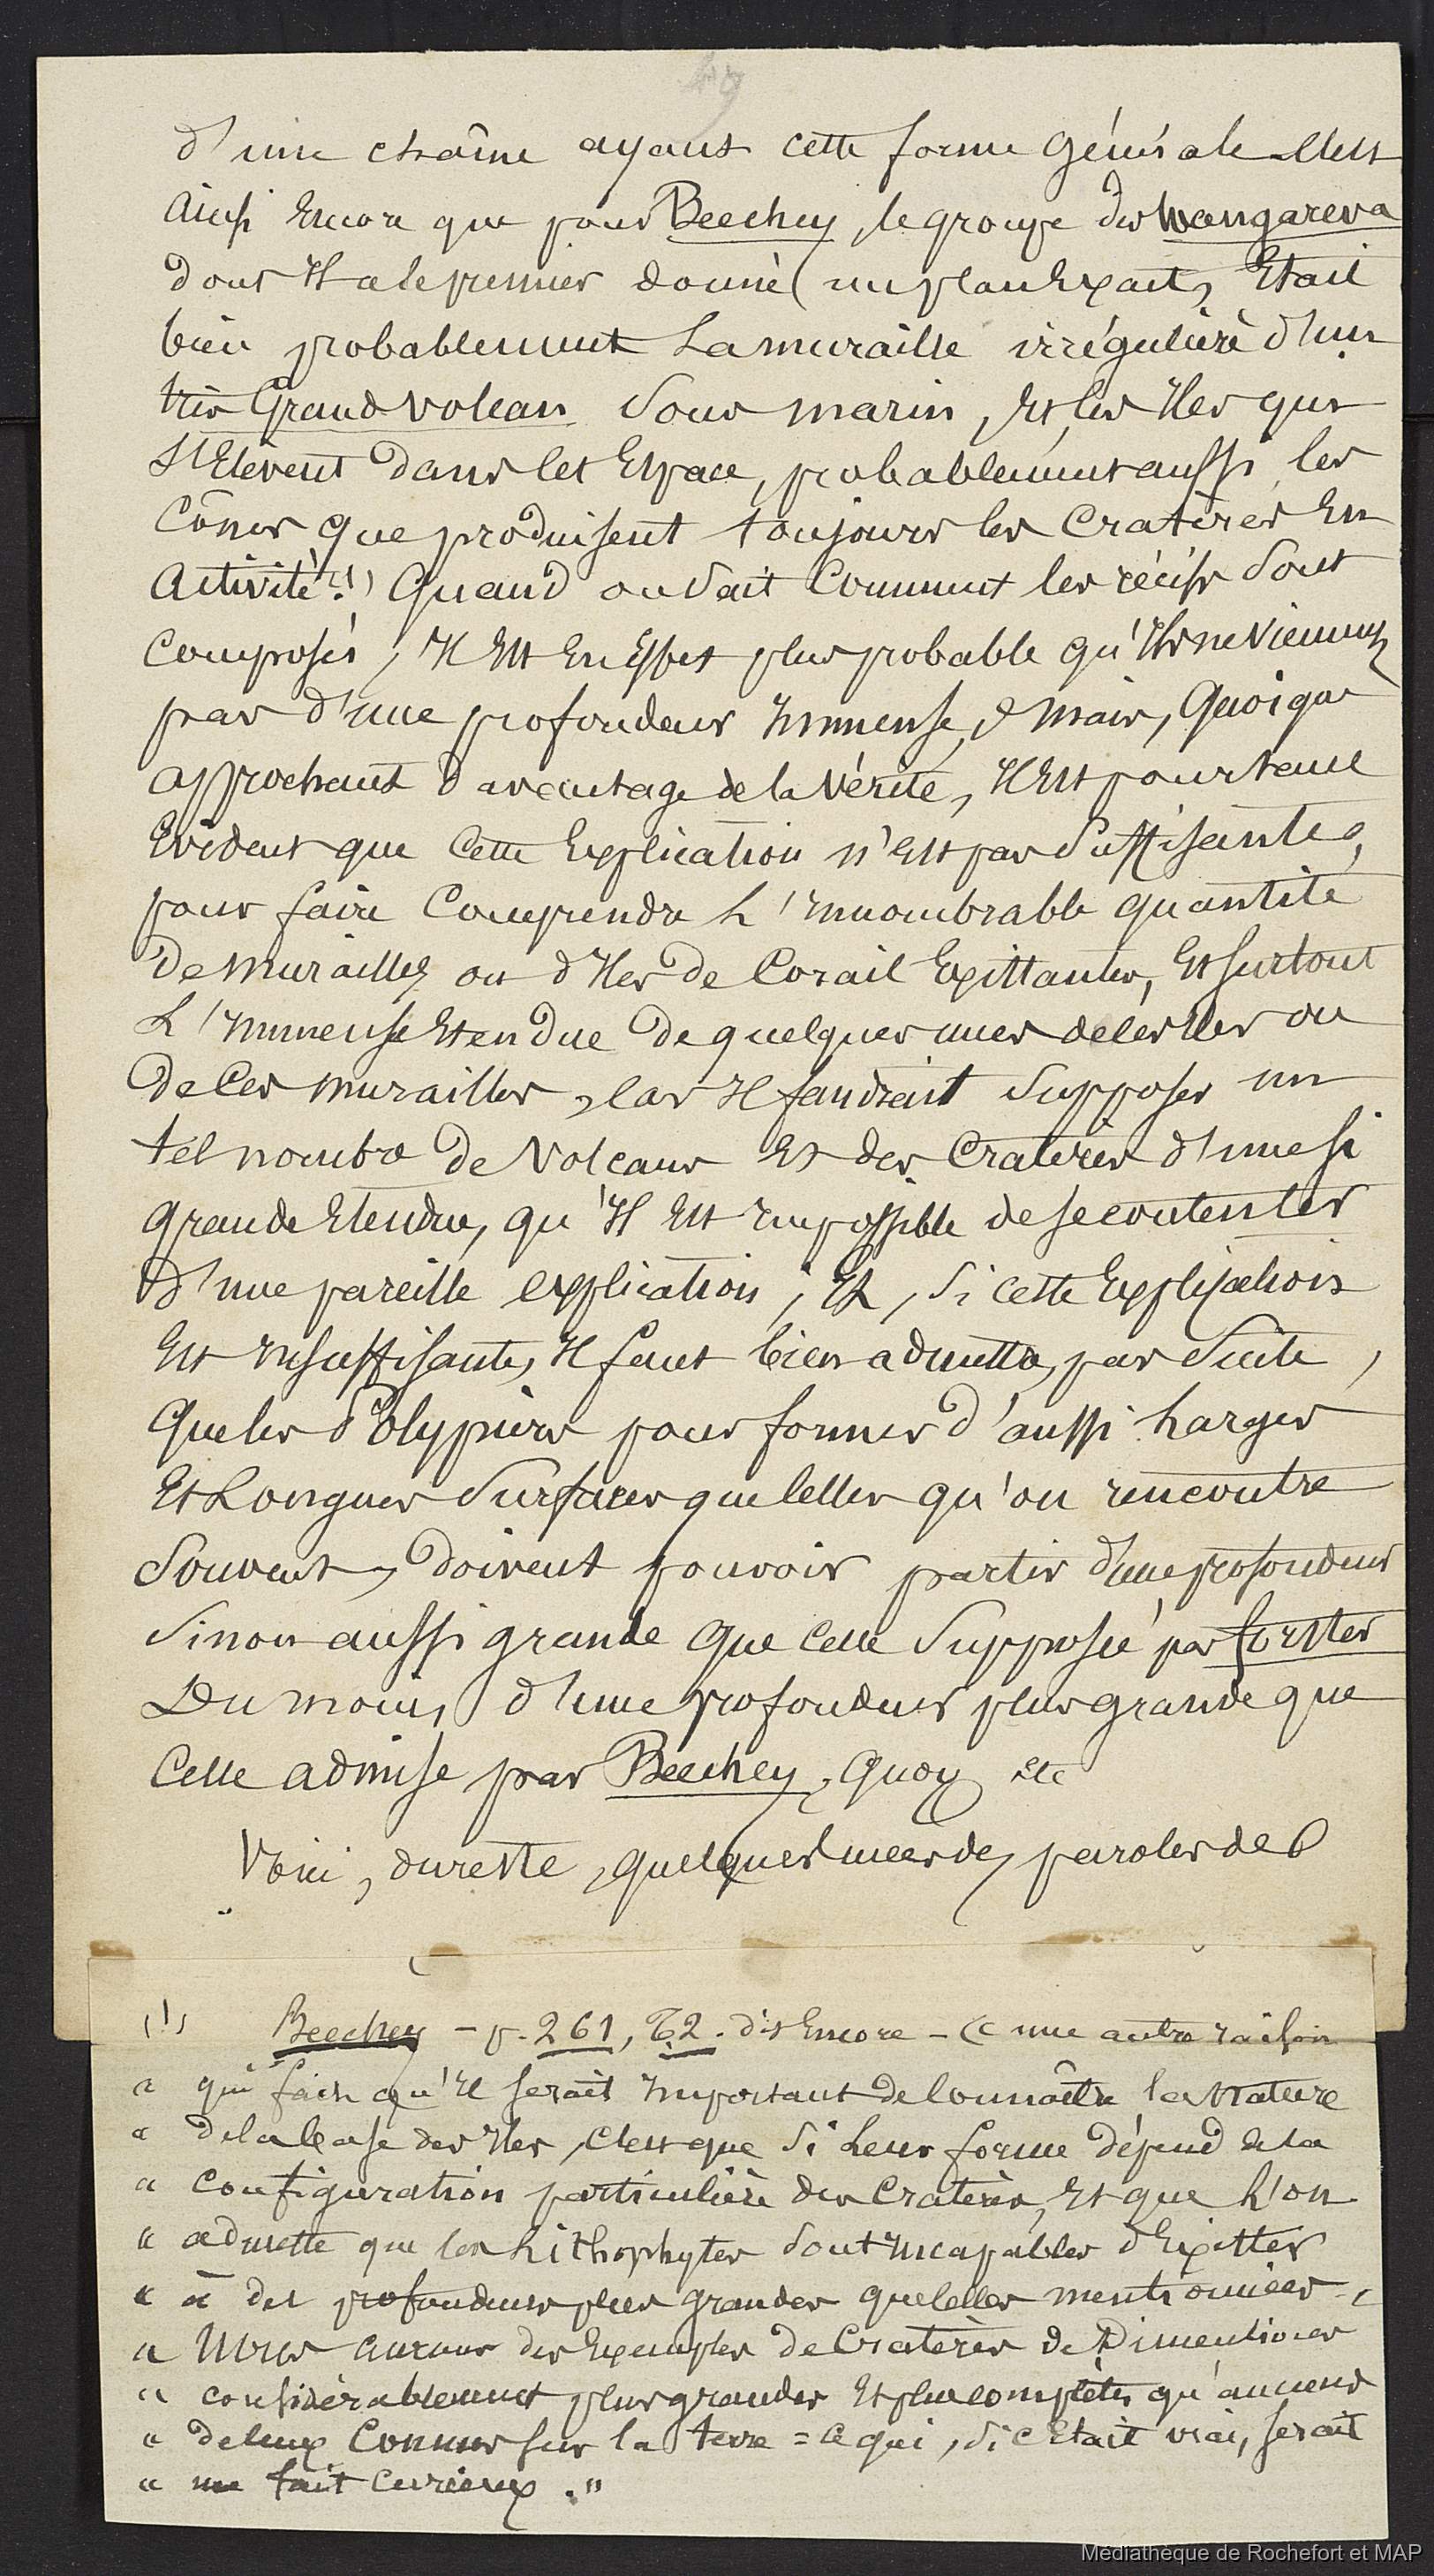 49
d'une chaîne ayant cette forme générale. C'est
Ainsi Encore que pour Beechey, le groupe des Mangareva
dont Il a le premier donné un plan Exact, Etait
bien probablement La muraille irrégulière d'un
très Grand volcan Sous marin, Et les Iles qui
S'Elèvent dans cet Espace, probablement aussi les
Cônes que produisent toujours les Cratères En
Activité. (1) Quand on Sait Comment les récifs Sont
Composés, Il Est En Effet plus probable qu'Ils ne Viennent
pas d'une profondeur Immense, mais, Quoique
approchant d'avantage de la Vérité, Il Est pourtant
Evident que Cette Explication n'Est pas Suffisante,
pour faire Comprendre L'Innombrable quantité
De murailles ou d'Iles de Corail Existantes, Et surtout
L'Immense Etendue De quelques unes de ces Iles ou
De Ces murailles, Car Il faudrait Supposer un
tel nombre De Volcans Et des Cratères d'une si
grande Etendue, qu'Il Est Impossible de se contenter
D'une pareille explication, Et, Si cette Explication
Est Insuffisante, Il faut bien admettre, par Suite,
Que les Polypiers pour former d'aussi Larges
Et Longues Surfaces que celles qu'on rencontre
Souvent, doivent pouvoir partir d'une profondeur
Sinon aussi grande que celle Supposée par forster
Du moins d'une profondeur plus grande que
Celle admise par Beechey, Quoy etc
Voici, du reste, quelques unes des paroles de
(1) Beechey - p. 261, T2. dit Encore - « une autre raison
« qui fait qu'Il serait Important de Connaître la Nature
« de la base des Iles, C'est que Si Leur forme dépend de la
« Configuration particulière des Cratères, Et que L'on
« admette que les Lithophytes Sont Incapables d'Exister
« à des profondeurs plus grandes que celles mentionnées,
« Nous aurons des Exemples de Cratères de Dimentions
« considérablement plus grandes Et plus complètes qu'aucuns
« de ceux Connus sur la terre = Ce qui, Si c'Etait vrai, serait
« un fait Curieux. »
Médiathèque de Rochefort et MAP